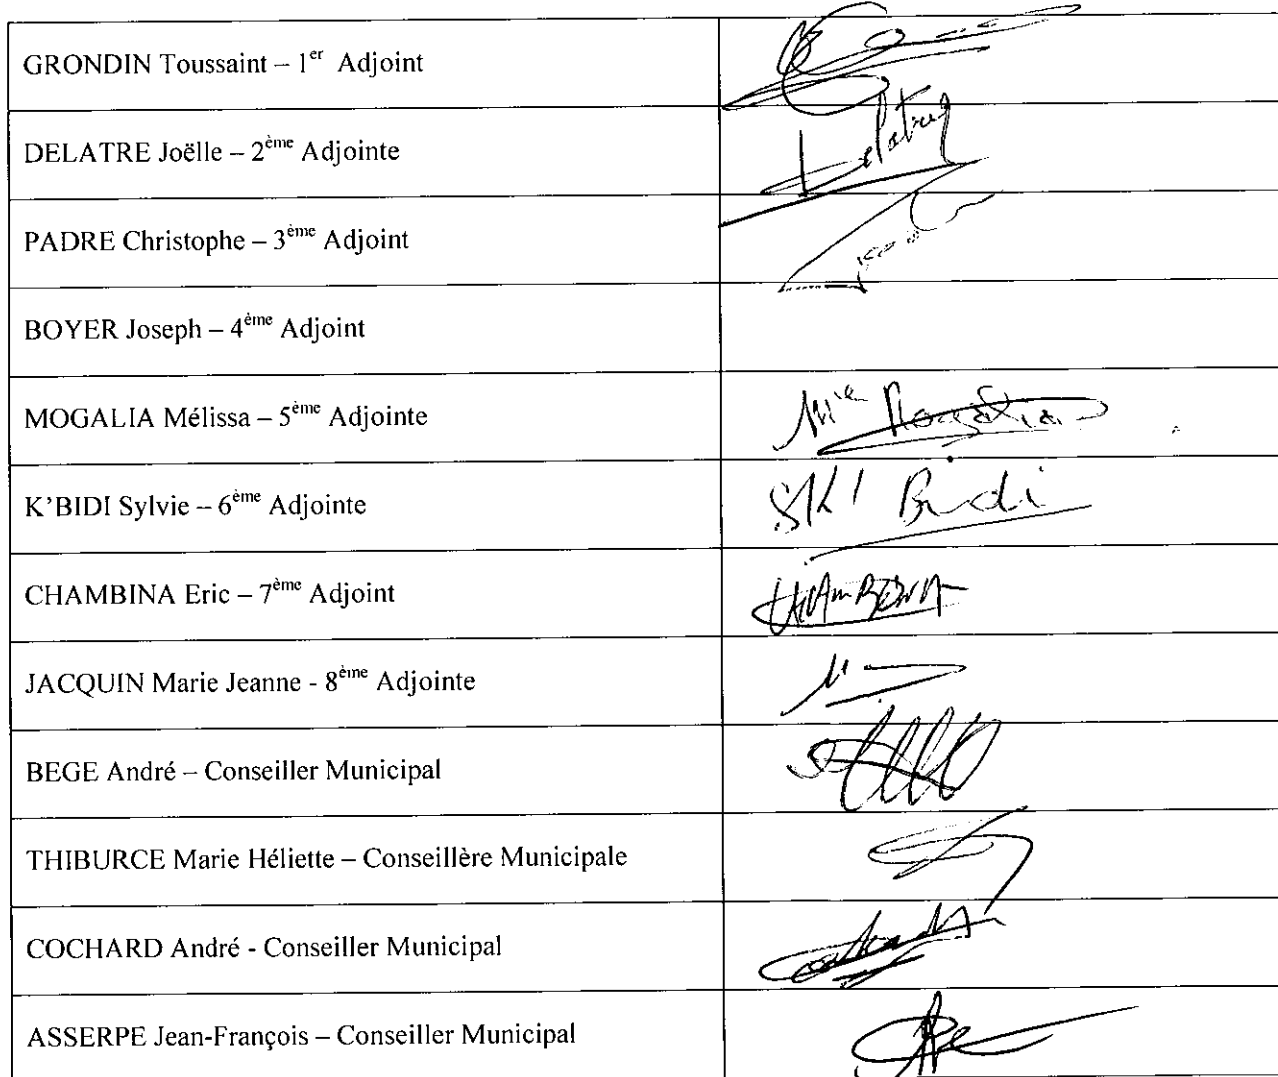 GRONDIN Toussaint – 1er Adjoint
DELATRE Joëlle – 2ème Adjointe
Delatre
PADRE Christophe – 3ème Adjoint
BOYER Joseph – 4ème Adjoint
MOGALIA Mélissa – 5ème Adjointe
Mogalia
K'BIDI Sylvie – 6ème Adjointe
SK' Bidi
CHAMBINA Eric – 7ème Adjoint
CHAMBINA
JACQUIN Marie Jeanne - 8ème Adjointe
BEGE André – Conseiller Municipal
THIBURCE Marie Héliette – Conseillère Municipale
COCHARD André - Conseiller Municipal
ASSERPE Jean-François – Conseiller Municipal